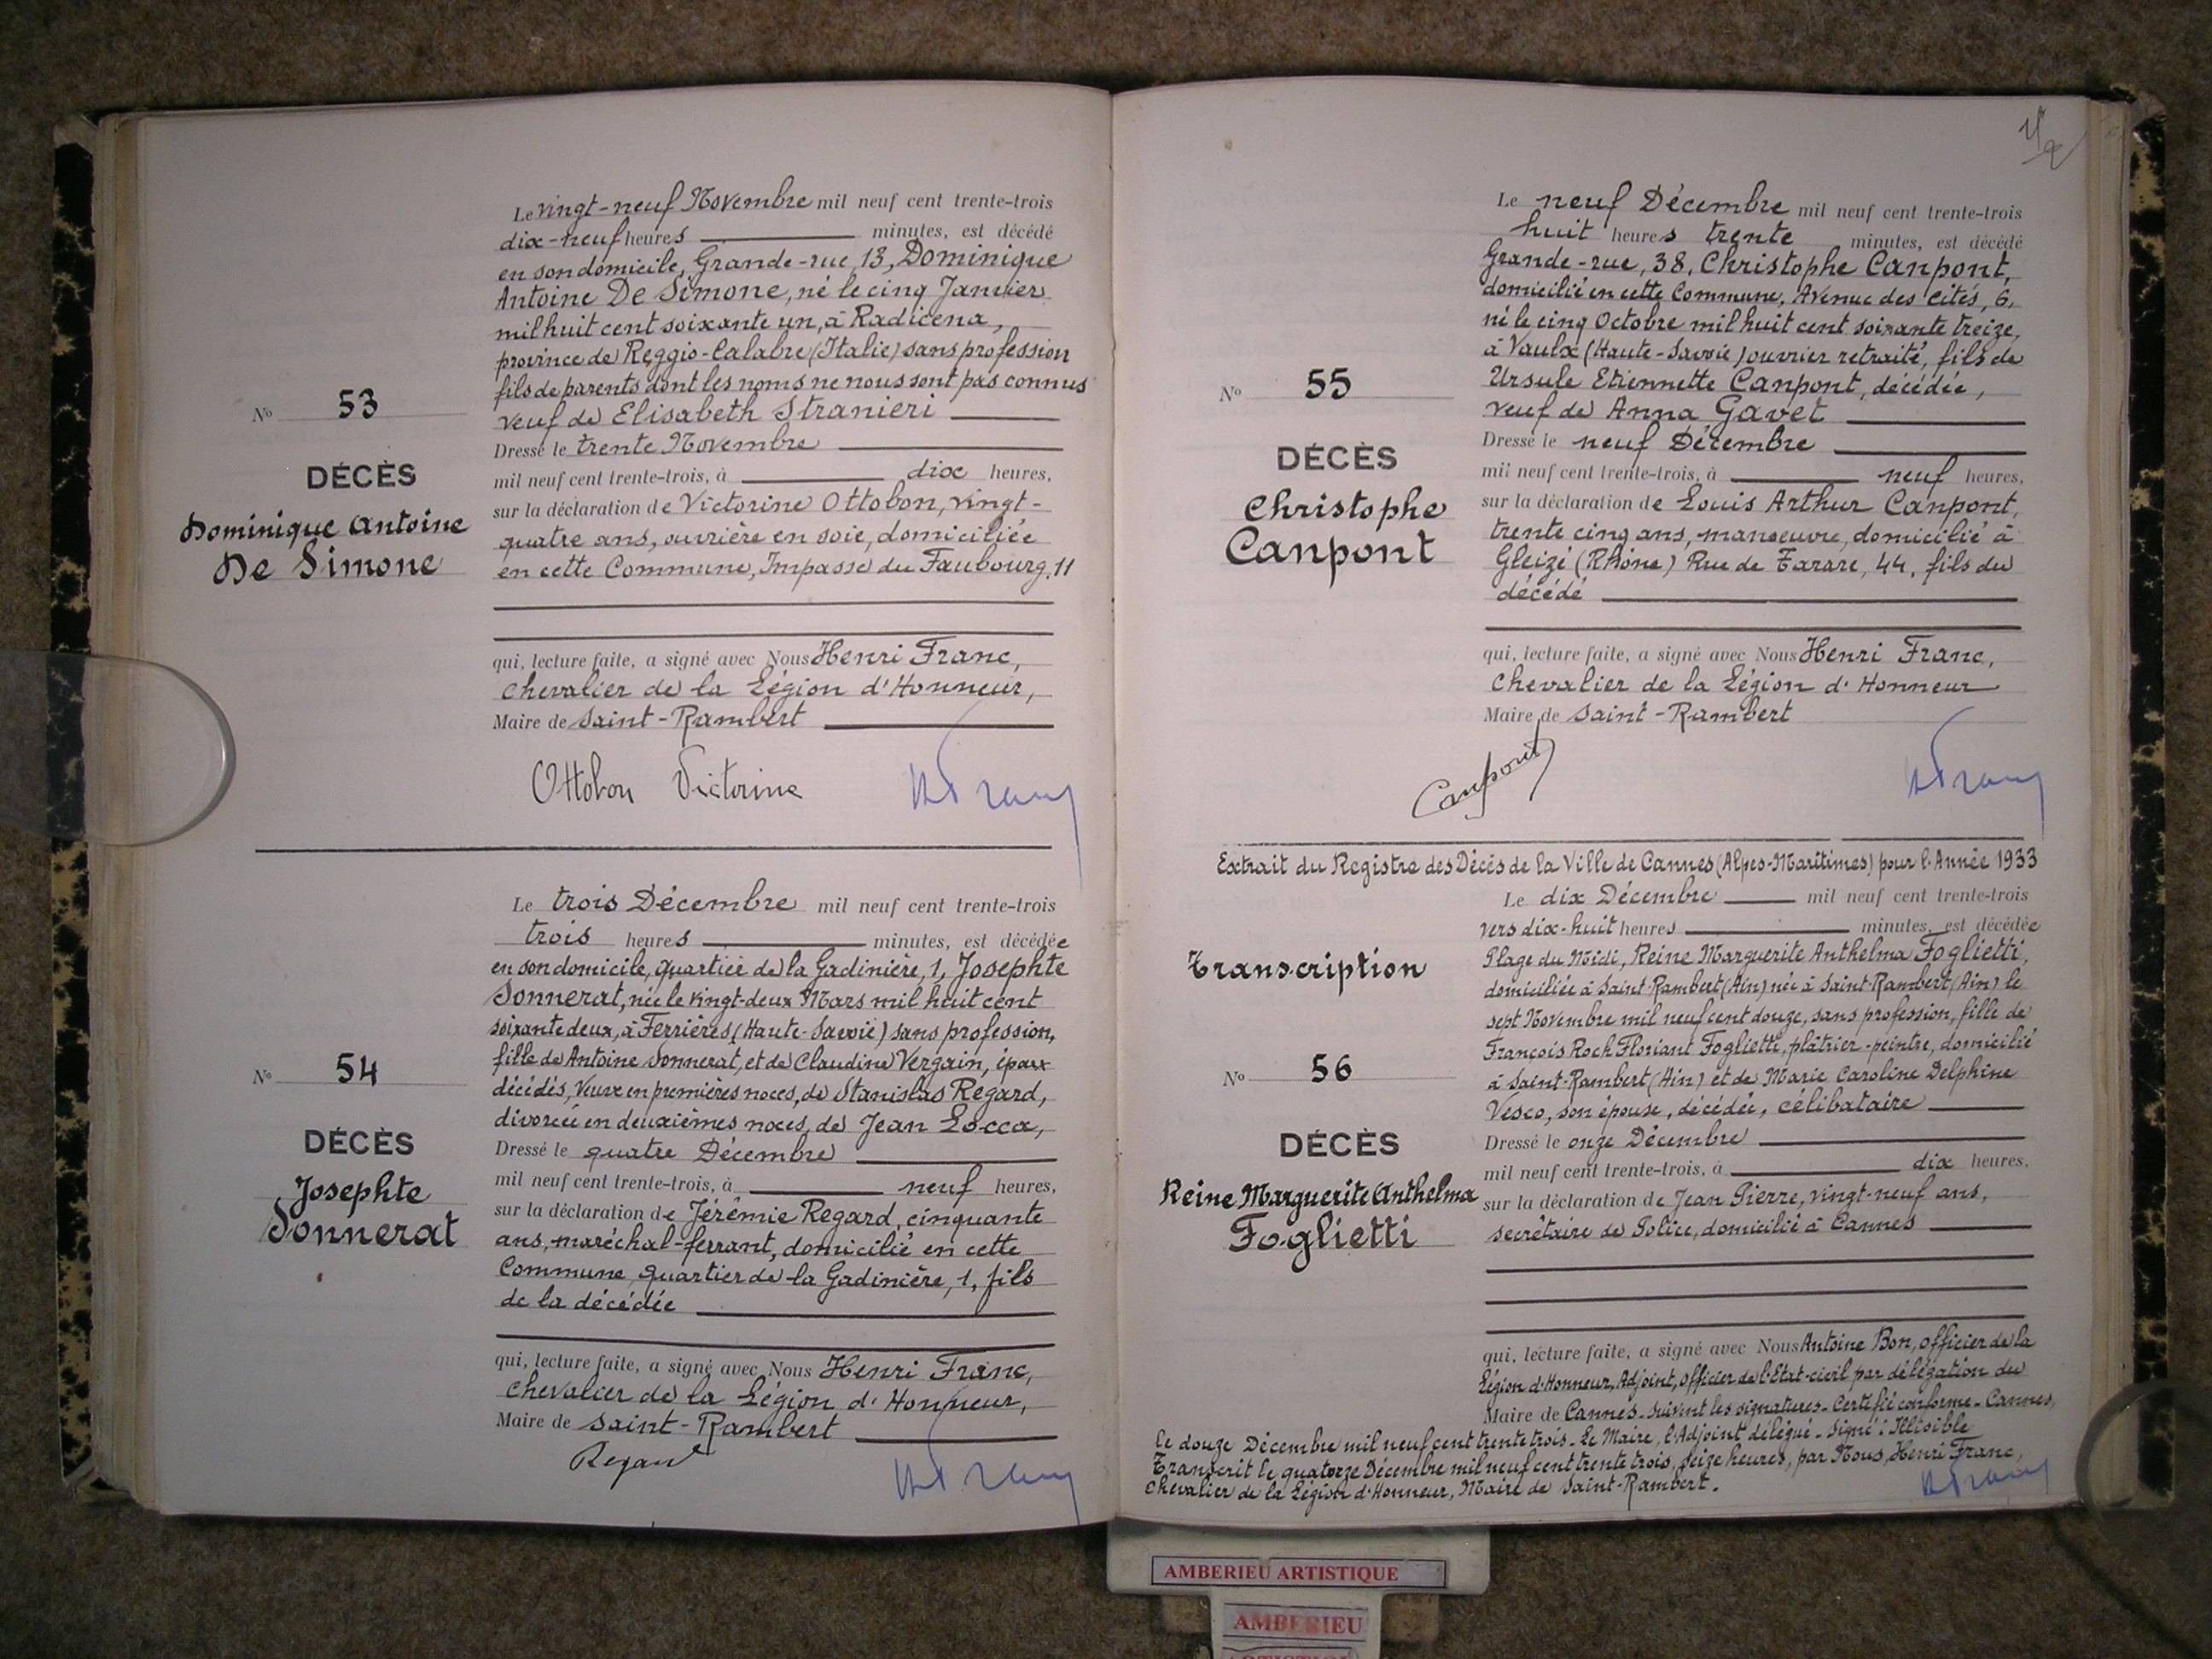 Le vingt-neuf Novembre mil neuf cent trente-trois
dix-neuf heures minutes, est décédé
en son domicile, Grande-rue, 13, Dominique
Antoine De Simone, né le cinq Janvier
mil huit cent soixante un, à Radicena,
province de Reggio-Calabre (Italie) sans profession
fils de parents dont les noms ne nous sont pas connus
veuf de Elisabeth Stranieri
Dressé le trente Novembre
mil neuf cent trente-trois, à dix heures,
sur la déclaration de Victorine Ottobon, vingt-
quatre ans, ouvrière en soie, domiciliée
en cette Commune, Impasse du Faubourg, 11
qui, lecture faite, a signé avec Nous Henri Franc,
Chevalier de la Légion d'Honneur,
Maire de Saint-Rambert
Ottobon Victorine HFranc
No 53
DÉCÈS
Dominique Antoine
De Simone
Le trois Décembre mil neuf cent trente-trois
trois heures minutes, est décédée
en son domicile, quartier de la Gadinière, 1, Josephte
Sonnerat, née le vingt-deux Mars mil huit cent
soixante deux, à Ferrières (Haute-Savoie) sans profession,
fille de Antoine Sonnerat, et de Claudine Vergain, époux
décédés, Veuve en premières noces, de Stanislas Regard,
divorcée en deuxièmes noces, de Jean Locca,
Dressé le quatre Décembre
mil neuf cent trente-trois, à neuf heures,
sur la déclaration de Jérémie Regard, cinquante
ans, maréchal-ferrant, domicilié en cette
Commune, quartier de la Gadinière, 1, fils
de la décédée
qui, lecture faite, a signé avec Nous Henri Franc,
Chevalier de la Légion d'Honneur,
Maire de Saint-Rambert
Regard HFranc
No 54
DÉCÈS
Josephte
Sonnerat
Le neuf Décembre mil neuf cent trente-trois
huit heures trente minutes, est décédé
Grande-rue, 38, Christophe Canpont,
domicilié en cette Commune, Avenue des Cités, 6,
né le cinq Octobre mil huit cent soixante treize,
à Vaulx (Haute-Savoie) ouvrier retraité, fils de
Ursule Etiennette Canpont, décédée,
veuf de Anna Gavet
Dressé le neuf Décembre
mil neuf cent trente-trois, à neuf heures,
sur la déclaration de Louis Arthur Canpont,
trente cinq ans, manoeuvre, domicilié à
Gleizé (Rhône) Rue de Tarare, 44, fils du
décédé
qui, lecture faite, a signé avec Nous Henri Franc,
Chevalier de la Légion d'Honneur
Maire de Saint-Rambert
Canpont HFranc
No 55
DÉCÈS
Christophe
Canpont
Extrait du Registre des Décès de la Ville de Cannes (Alpes-Maritimes) pour l'Année 1933
Le dix Décembre mil neuf cent trente-trois
vers dix-huit heures minutes, est décédée
Plage du Midi, Reine Marguerite Anthelma Foglietti,
domiciliée à Saint-Rambert (Ain) née à Saint-Rambert (Ain) le
sept Novembre mil neuf cent douze, sans profession, fille de
François Roch Floriant Foglietti, plâtrier-peintre, domicilié
à Saint-Rambert (Ain) et de Marie Caroline Delphine
Vesco, son épouse, décédée, célibataire
Dressé le onze Décembre
mil neuf cent trente-trois, à dix heures,
sur la déclaration de Jean Pierre, vingt-neuf ans,
secrétaire de Police, domicilié à Cannes
qui, lecture faite, a signé avec Nous Antoine Bon, officier de la
Légion d'Honneur, Adjoint, officier de l'Etat-civil par délégation du
Maire de Cannes. Suivent les signatures. Certifié conforme. Cannes,
le douze Décembre mil neuf cent trente trois. Le Maire, l'Adjoint délégué. Signé: Illisible
Transcrit le quatorze Décembre mil neuf cent trente trois, seize heures, par Nous, Henri Franc,
Chevalier de la Légion d'Honneur, Maire de Saint-Rambert. HFranc
Transcription
No 56
DÉCÈS
Reine Marguerite Anthelma
Foglietti
AMBERIEU ARTISTIQUE
AMBERIEU
ARTISTIQUE